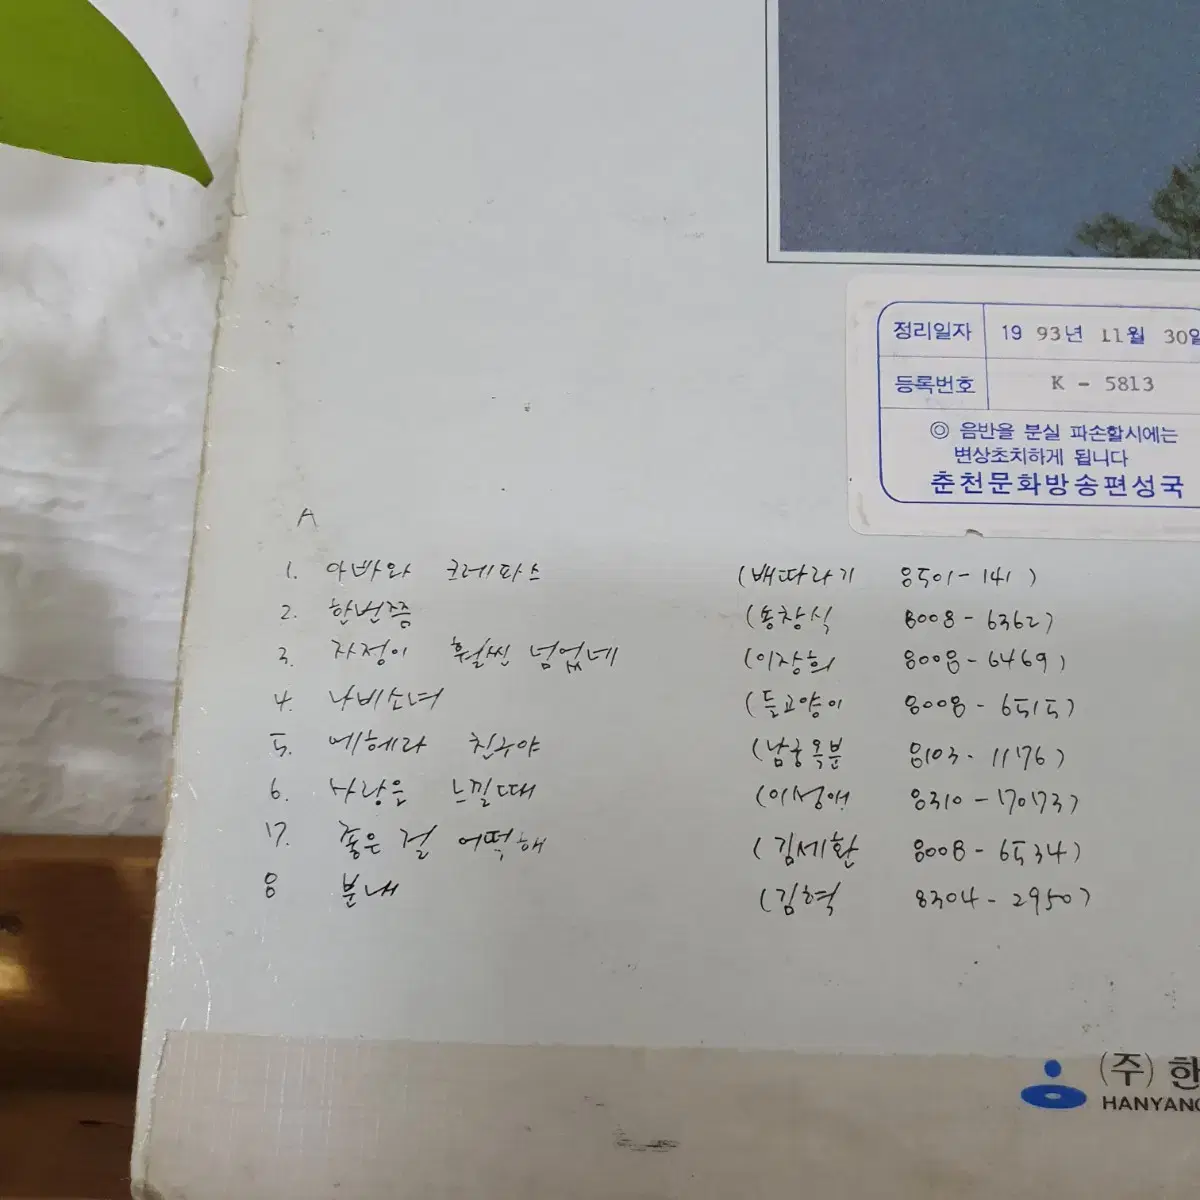 정리일자 19 93년 11월 30일
등록번호 K - 5813
◎ 음반을 분실 파손할시에는
변상초치하게 됩니다
춘천문화방송편성국
A
1. 아빠와 크레파스 (배따라기 8501-141)
2. 한번쯤 (송창식 8008-6362)
3. 자정이 훨씬 넘었네 (이장희 8008-6469)
4. 나비소녀 (들고양이 8008-6515)
5. 에헤라 친구야 (남궁옥분 8103-1176)
6. 사랑은 느낄때 (이성애 8310-7073)
7. 좋은 걸 어떡해 (김세환 8008-6534)
8 분내 (김혁 8304-2950)
(주) 한
HANYANG